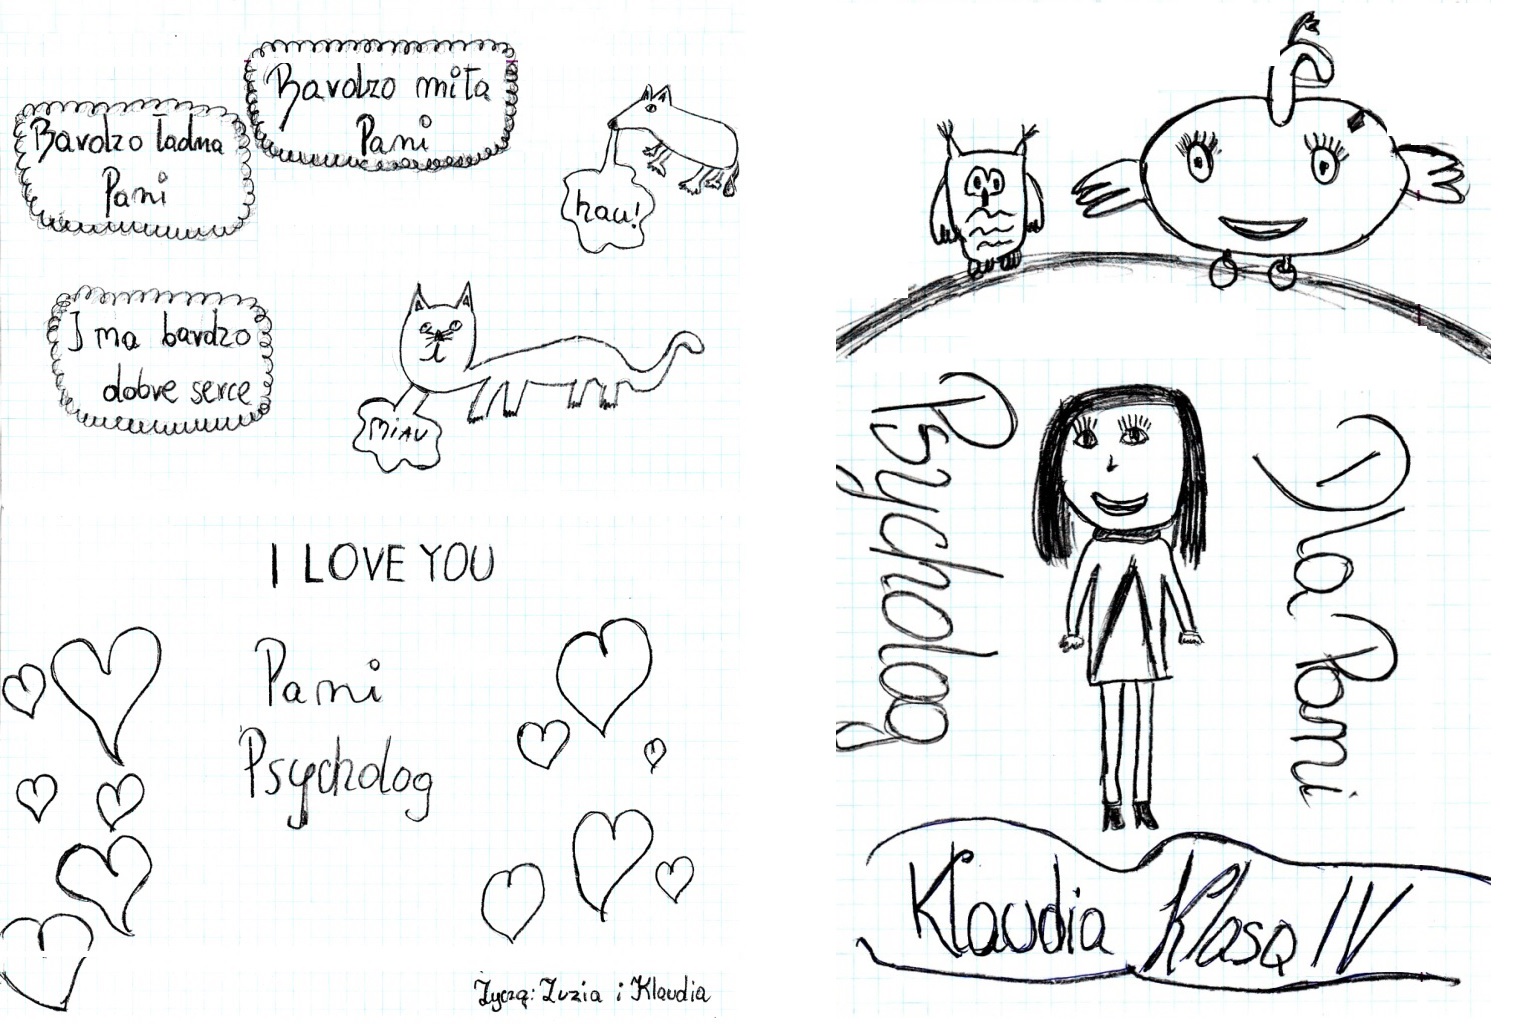 Bardzo ładna
Pani
Bardzo miła
Pani
hau!
I ma bardzo
dobre serce
MIAU
I LOVE YOU
Pani
Psycholog
Życzą: Zuzia i Klaudia
Dla Pani
Psycholog
Klaudia Klasa IV